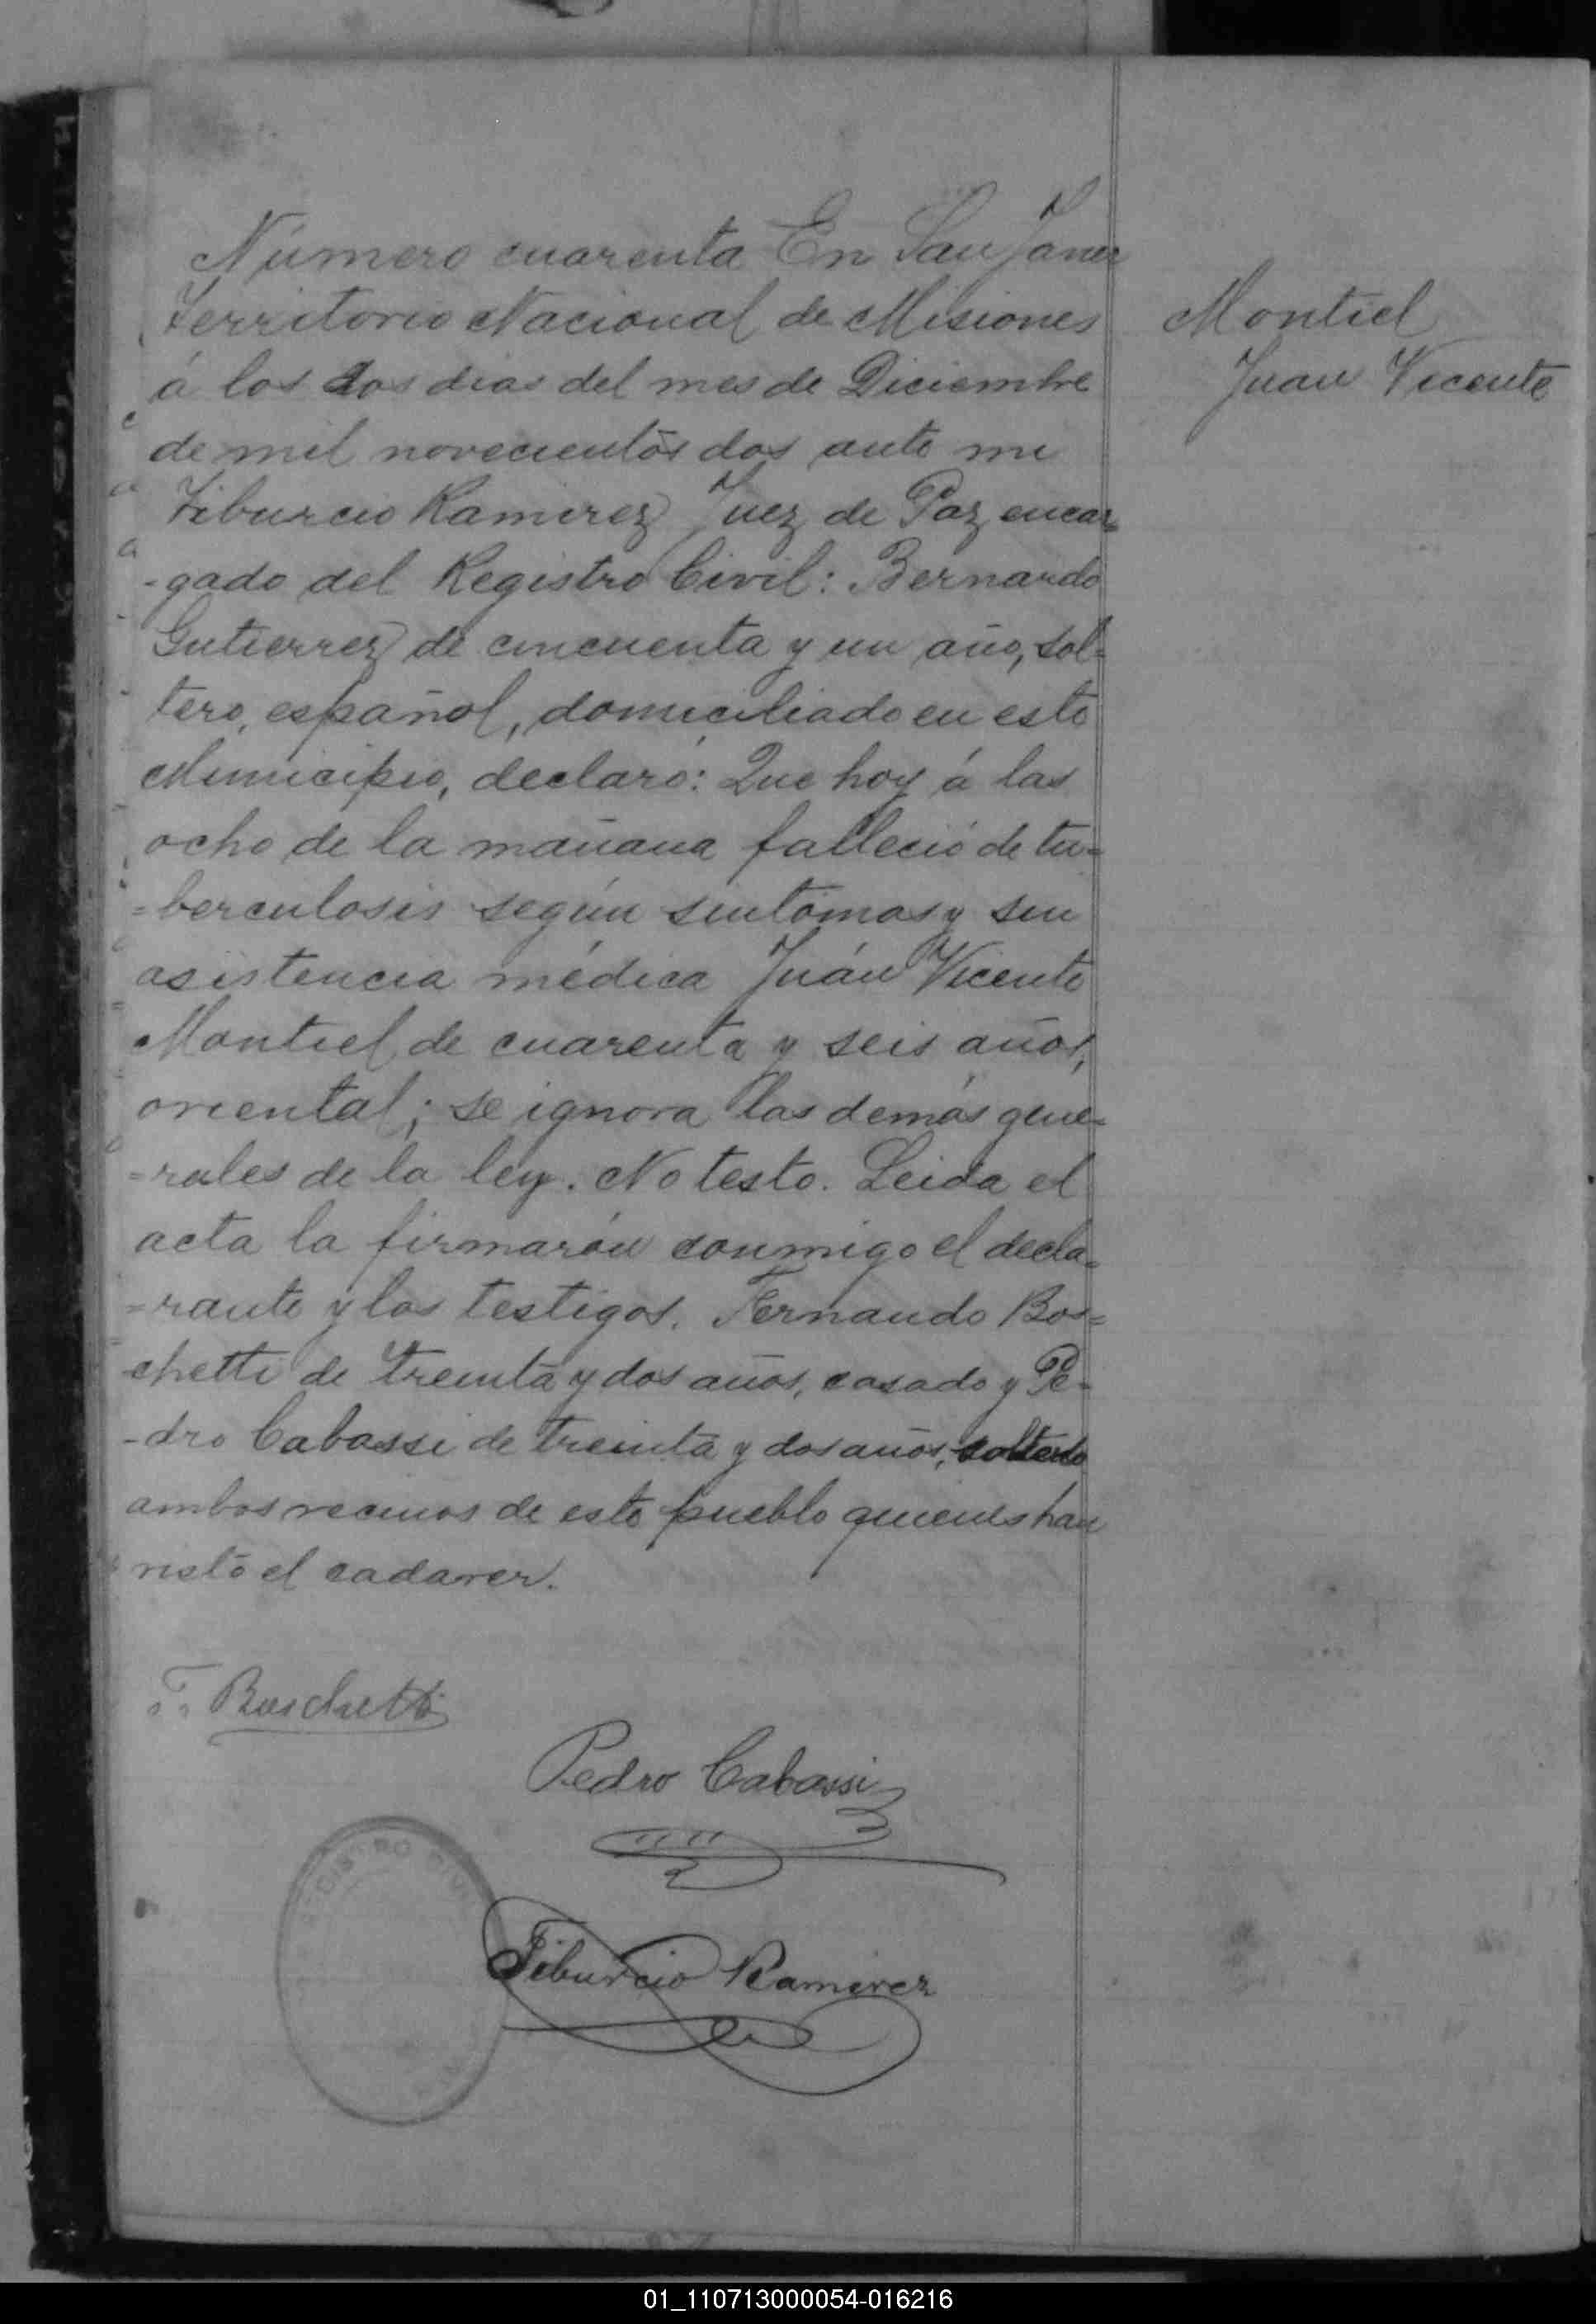 Número cuarenta En San Javier
Territorio Nacional de Misiones
á los dos dias del mes de Diciembre
de mil novecientos dos ante mi
Tiburcio Ramirez Juez de Paz encar=
-gado del Registro Civil: Bernardo
Gutierrez de cincuenta y un año, sol=
tero, español, domiciliado en este
Municipio, declaró: Que hoy á las
ocho de la mañana falleció de tu=
=berculosis según sintomas y sin
asistencia médica Juán Vicente
Montiel de cuarenta y seis años,
oriental; se ignora las demás gene=
=rales de la ley. No testo. Leida el
acta la firmarón conmigo el decla=
=rante y los testigos. Fernando Bos=
chetti de treinta y dos años, casado y Pe-
-dro Cabassi de treinta y dos años, soltero
ambos vecinos de este pueblo quienes han
visto el cadaver.
Montiel
Juan Vicente
F. Boschetti
Pedro Cabassi
REGISTRO CIVIL
Tiburcio Ramirez
01_110713000054-016216